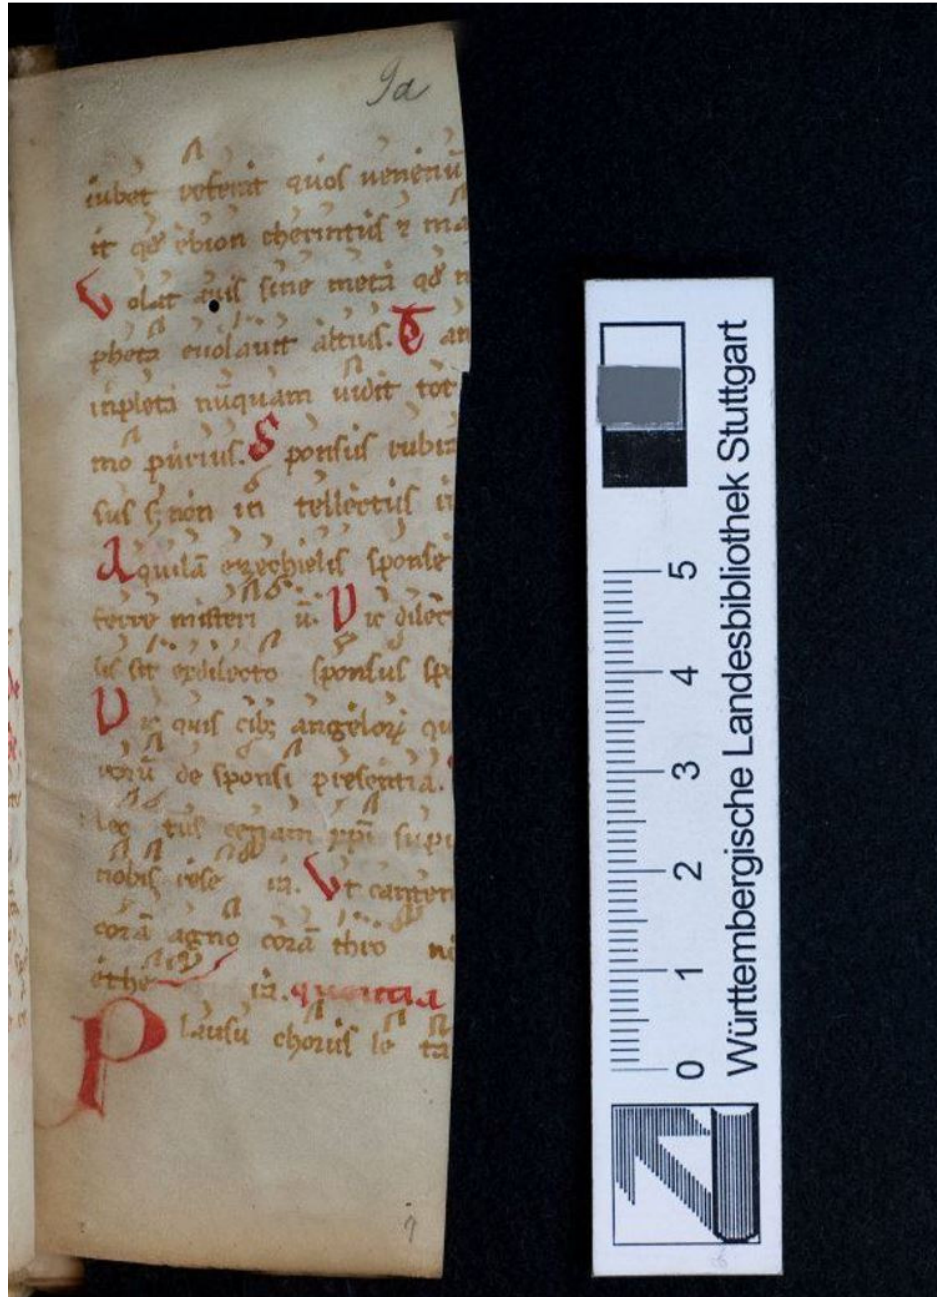 9a
iubet referit quos uenenū
it qđ ebion cherintus ⁊ ma
Volat auis sine meta qđ n
pheta euolauit altius. Tan
inpleta nūquam uidit tot
mo purius. Sponsus rubra
sus s; non in tellectus in
Aquilā ezechielis sponse
ferre misteri ū. Dic dilect
lis sit exdilecto sponsus spo
Dic quis cibꝫ angeloꝝ qu
uerū de sponsi presentia.
lec tus cenam xp̄i supi
nobis rese in. Vt canten
corā agno corā thro ni
ethe is.
Plausu chorus le ta
7
Württembergische Landesbibliothek Stuttgart
0 1 2 3 4 5